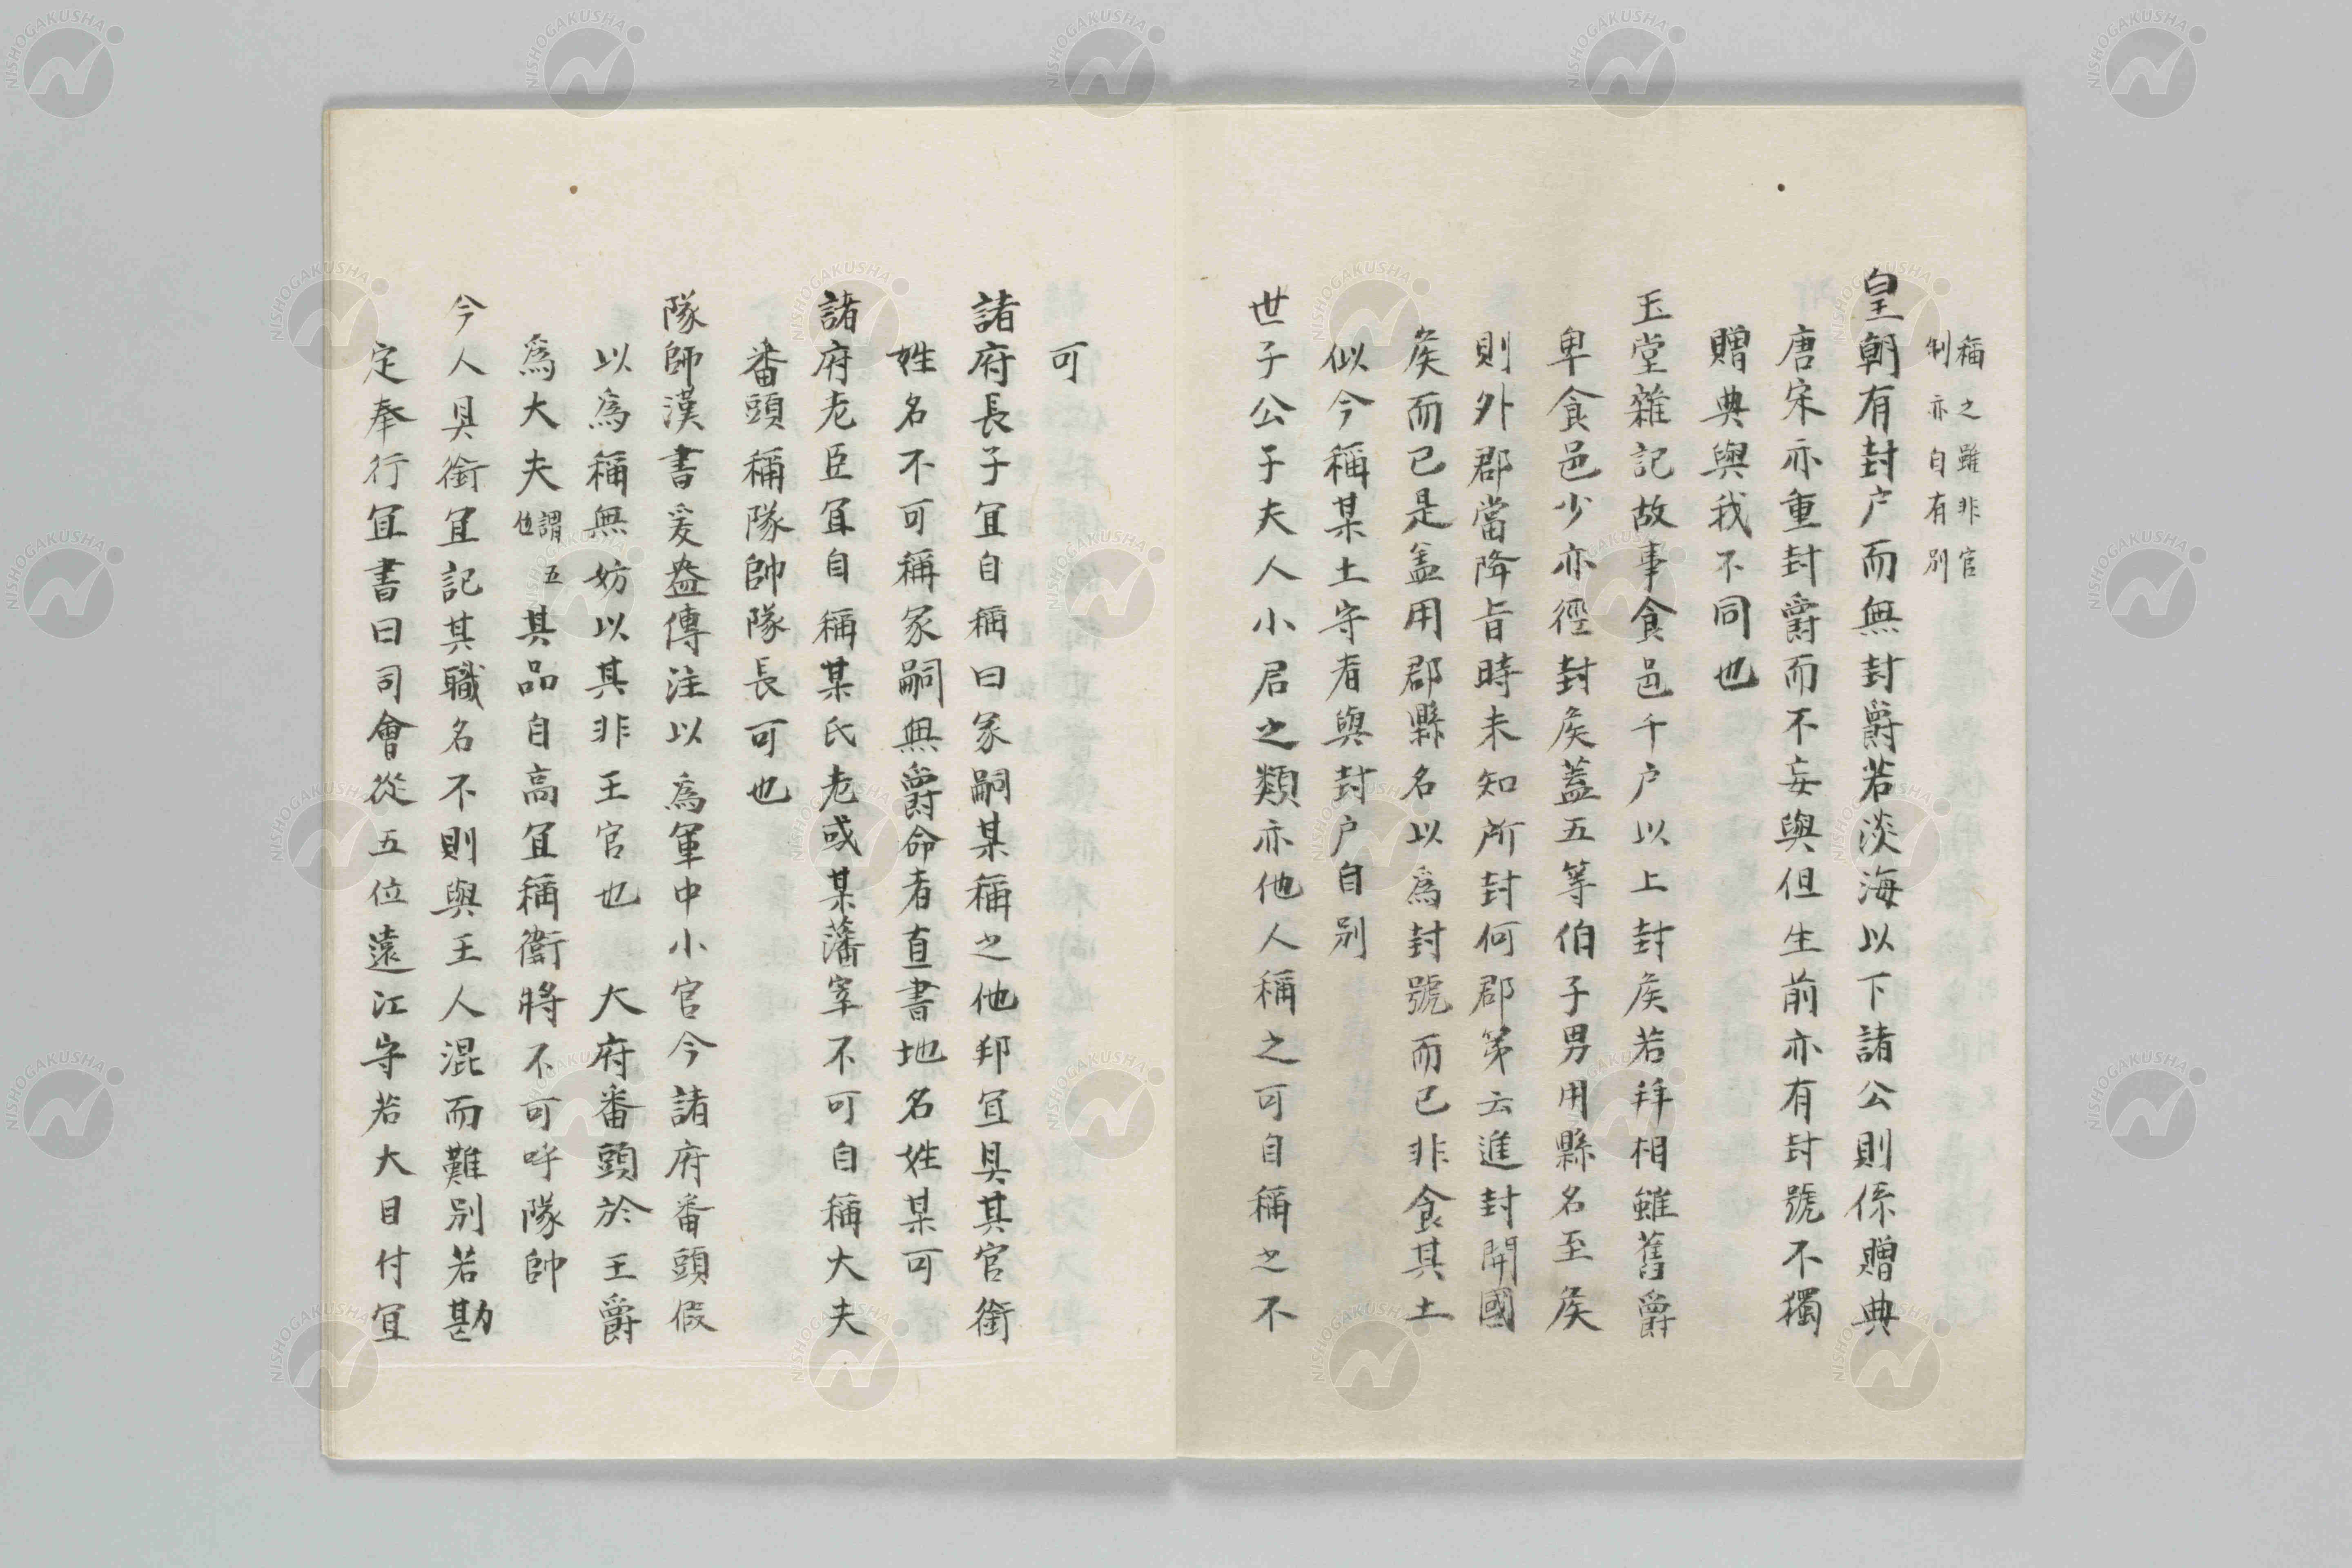 稱之雖非官
制亦自有別
皇朝有封户而無封爵若淡海以下諸公則係贈典
唐宋亦重封爵而不妄與但生前亦有封號不獨
贈典與我不同也
玉堂雜記故事食邑千户以上封侯若拜相雖舊爵
卑食邑少亦徑封侯蓋五等伯子男用縣名至侯
則外郡當降旨時未知所封何郡第云進封開國
侯而已是盖用郡縣名以為封號而已非食其土
似今稱某土守者與封户自別
世子公子夫人小君之類亦他人稱之可自稱之不
可
諸府長子宜自稱曰冢嗣某稱之他邦宜具其官銜
姓名不可稱冢嗣無爵命者直書地名姓某可
諸府老臣宜自稱某氏老或某藩宰不可自稱大夫
番頭稱隊帥隊長可也
隊師漢書爰盎傳注以為軍中小官今諸府番頭假
以為稱無妨以其非王官也 大府番頭於王爵
為大夫謂五位其品自高宜稱衛將不可呼隊帥
今人具銜宜記其職名不則與王人混而難別若勘
定奉行宜書曰司會從五位遠江守若大目付宜